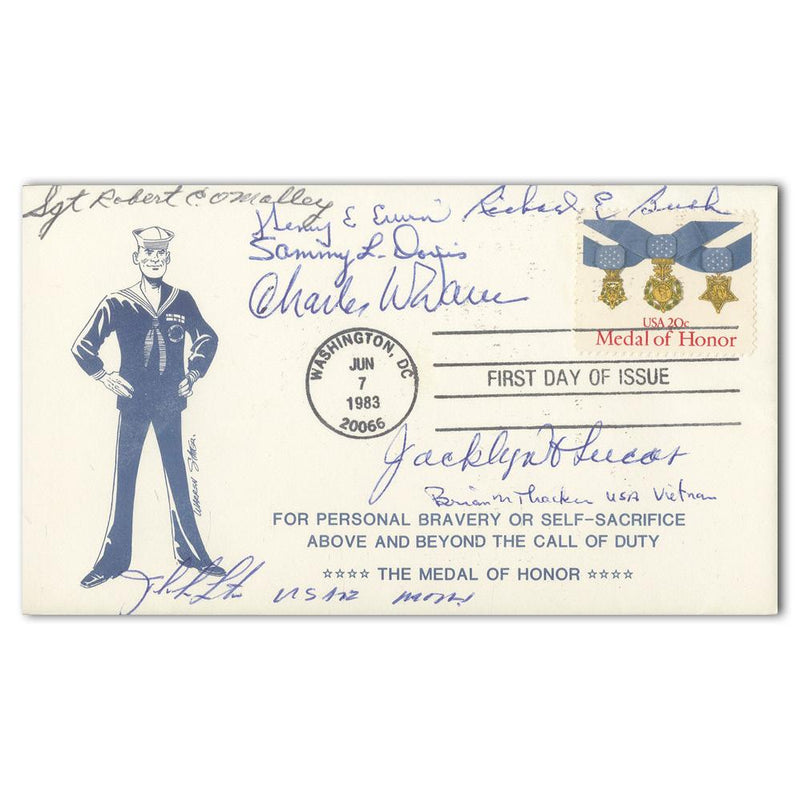 Sgt Robert E O'Malley
Henry E Erwin Richard E Bush
Sammy L. Davis
Charles W
USA 20c
Medal of Honor
WASHINGTON, DC
JUN
7
1983
20066
FIRST DAY OF ISSUE
Jacklyn H Lucas
Brian M Thacker USA Vietnam
FOR PERSONAL BRAVERY OR SELF-SACRIFICE
ABOVE AND BEYOND THE CALL OF DUTY
☆☆☆☆ THE MEDAL OF HONOR ☆☆☆☆